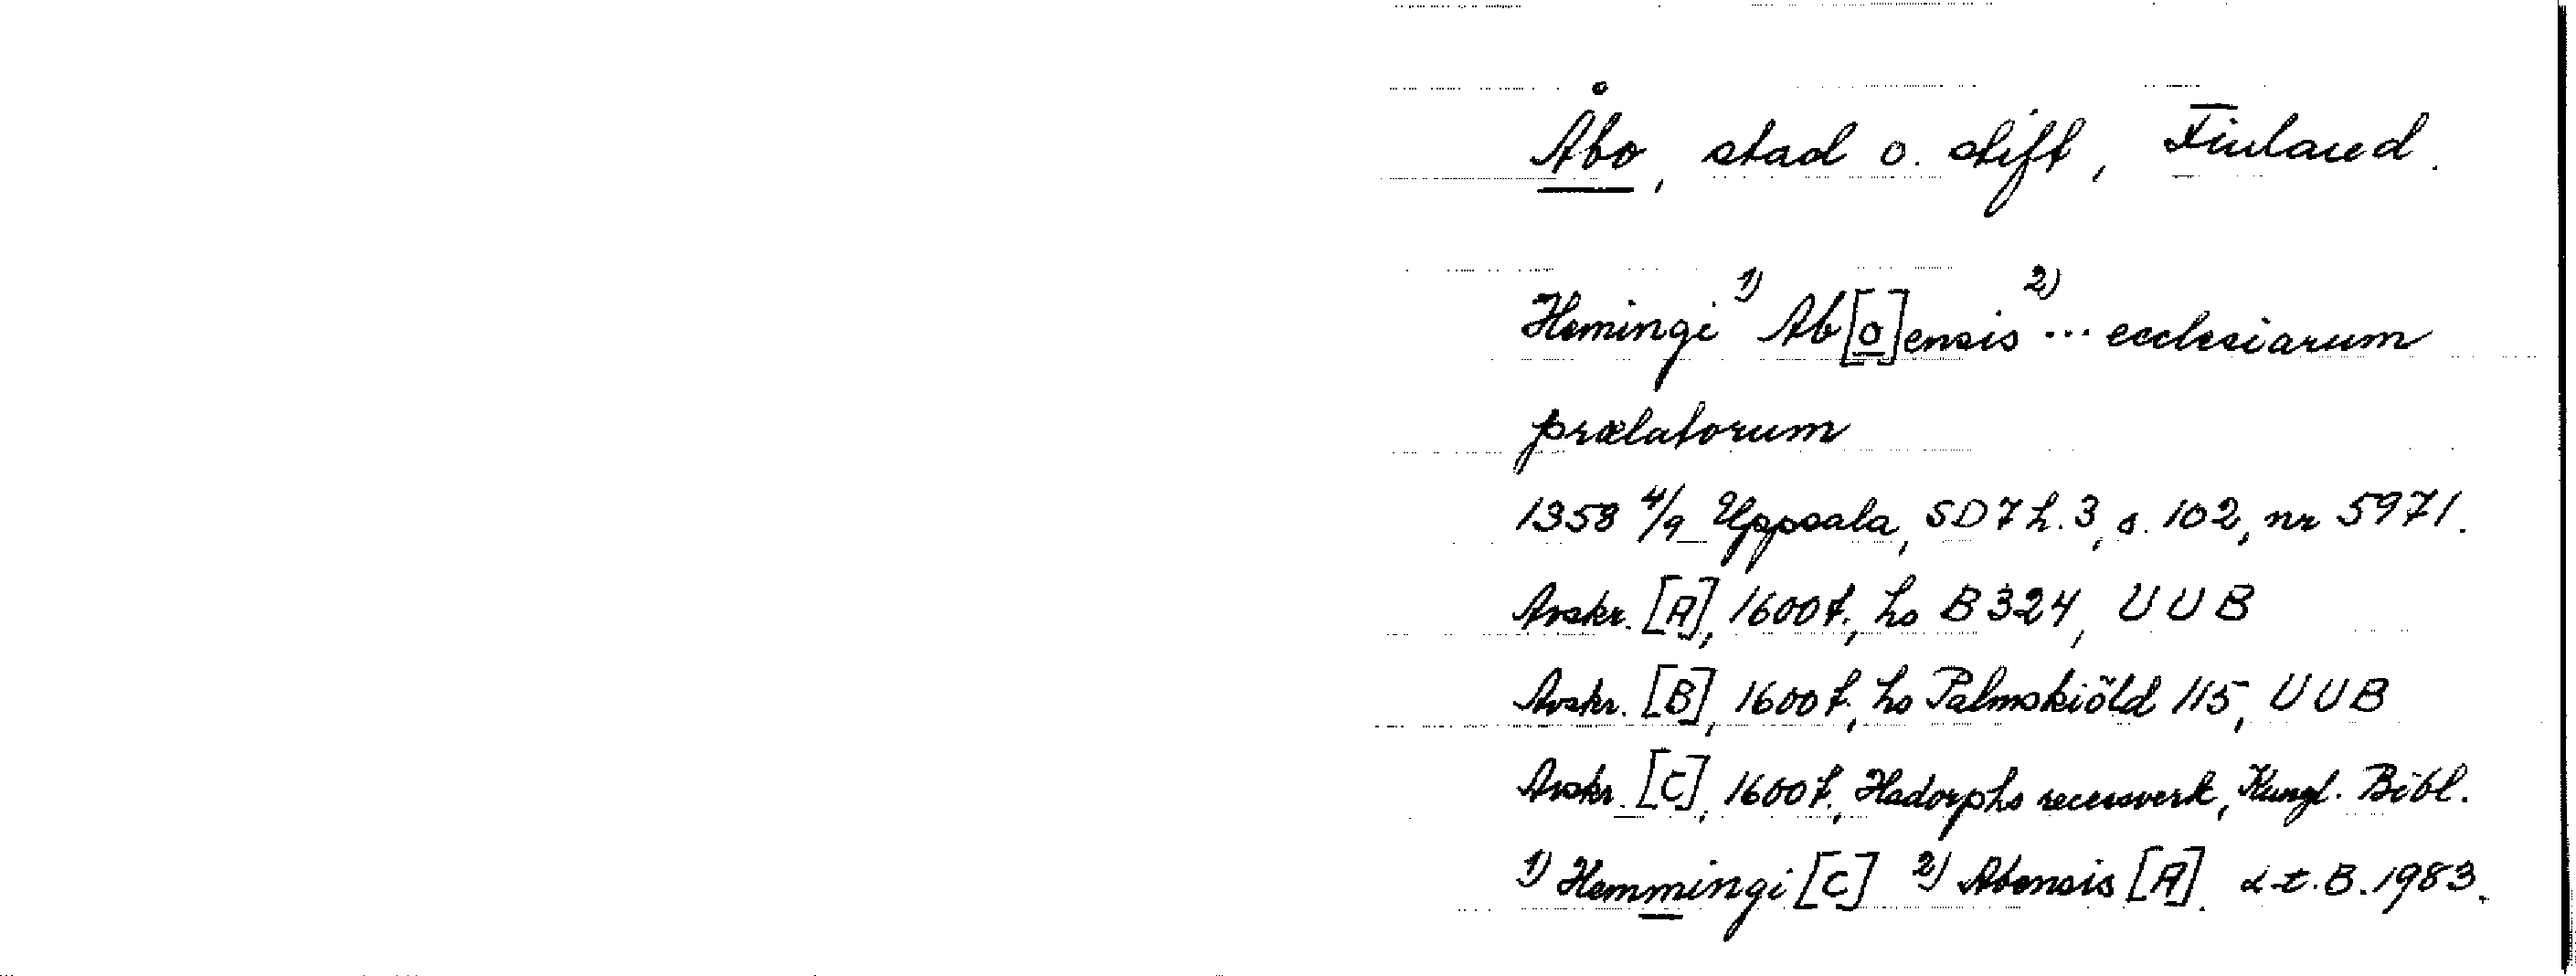 Åbo, stad o. stift, Finland.
Hemingi 1) Ab[o]ensis 2) ... ecclesiarum
prælatorum
1358 4/9 Uppsala, SD 7 h. 3, s. 102, nr 5971.
Avskr. [A], 1600t., hs B 324, UUB
Avskr. [B], 1600t., hs Palmskiöld 115, UUB
Avskr. [C], 1600t., Hadorphs recessverk, Kungl. Bibl.
1) Hemmingi [C] 2) Abensis [A]. L-t. B. 1983.